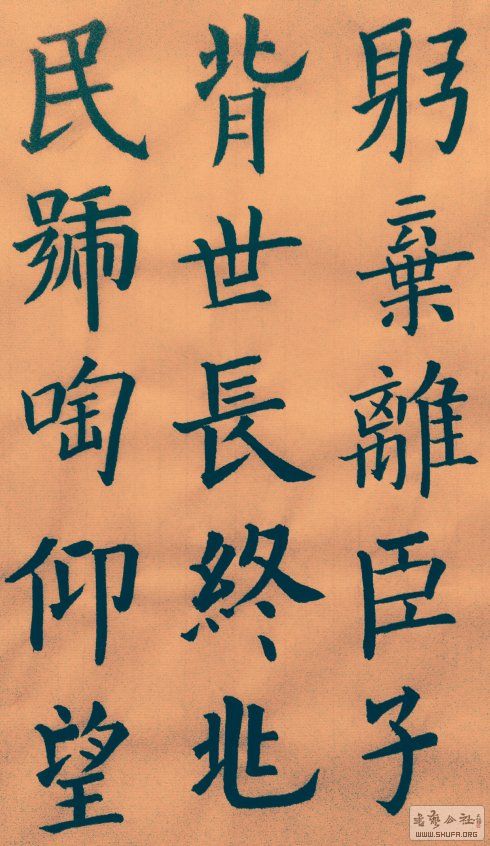 躬棄離臣子
背世長終兆
民號啕仰望
書藝公社
WWW.SHUFA.ORG